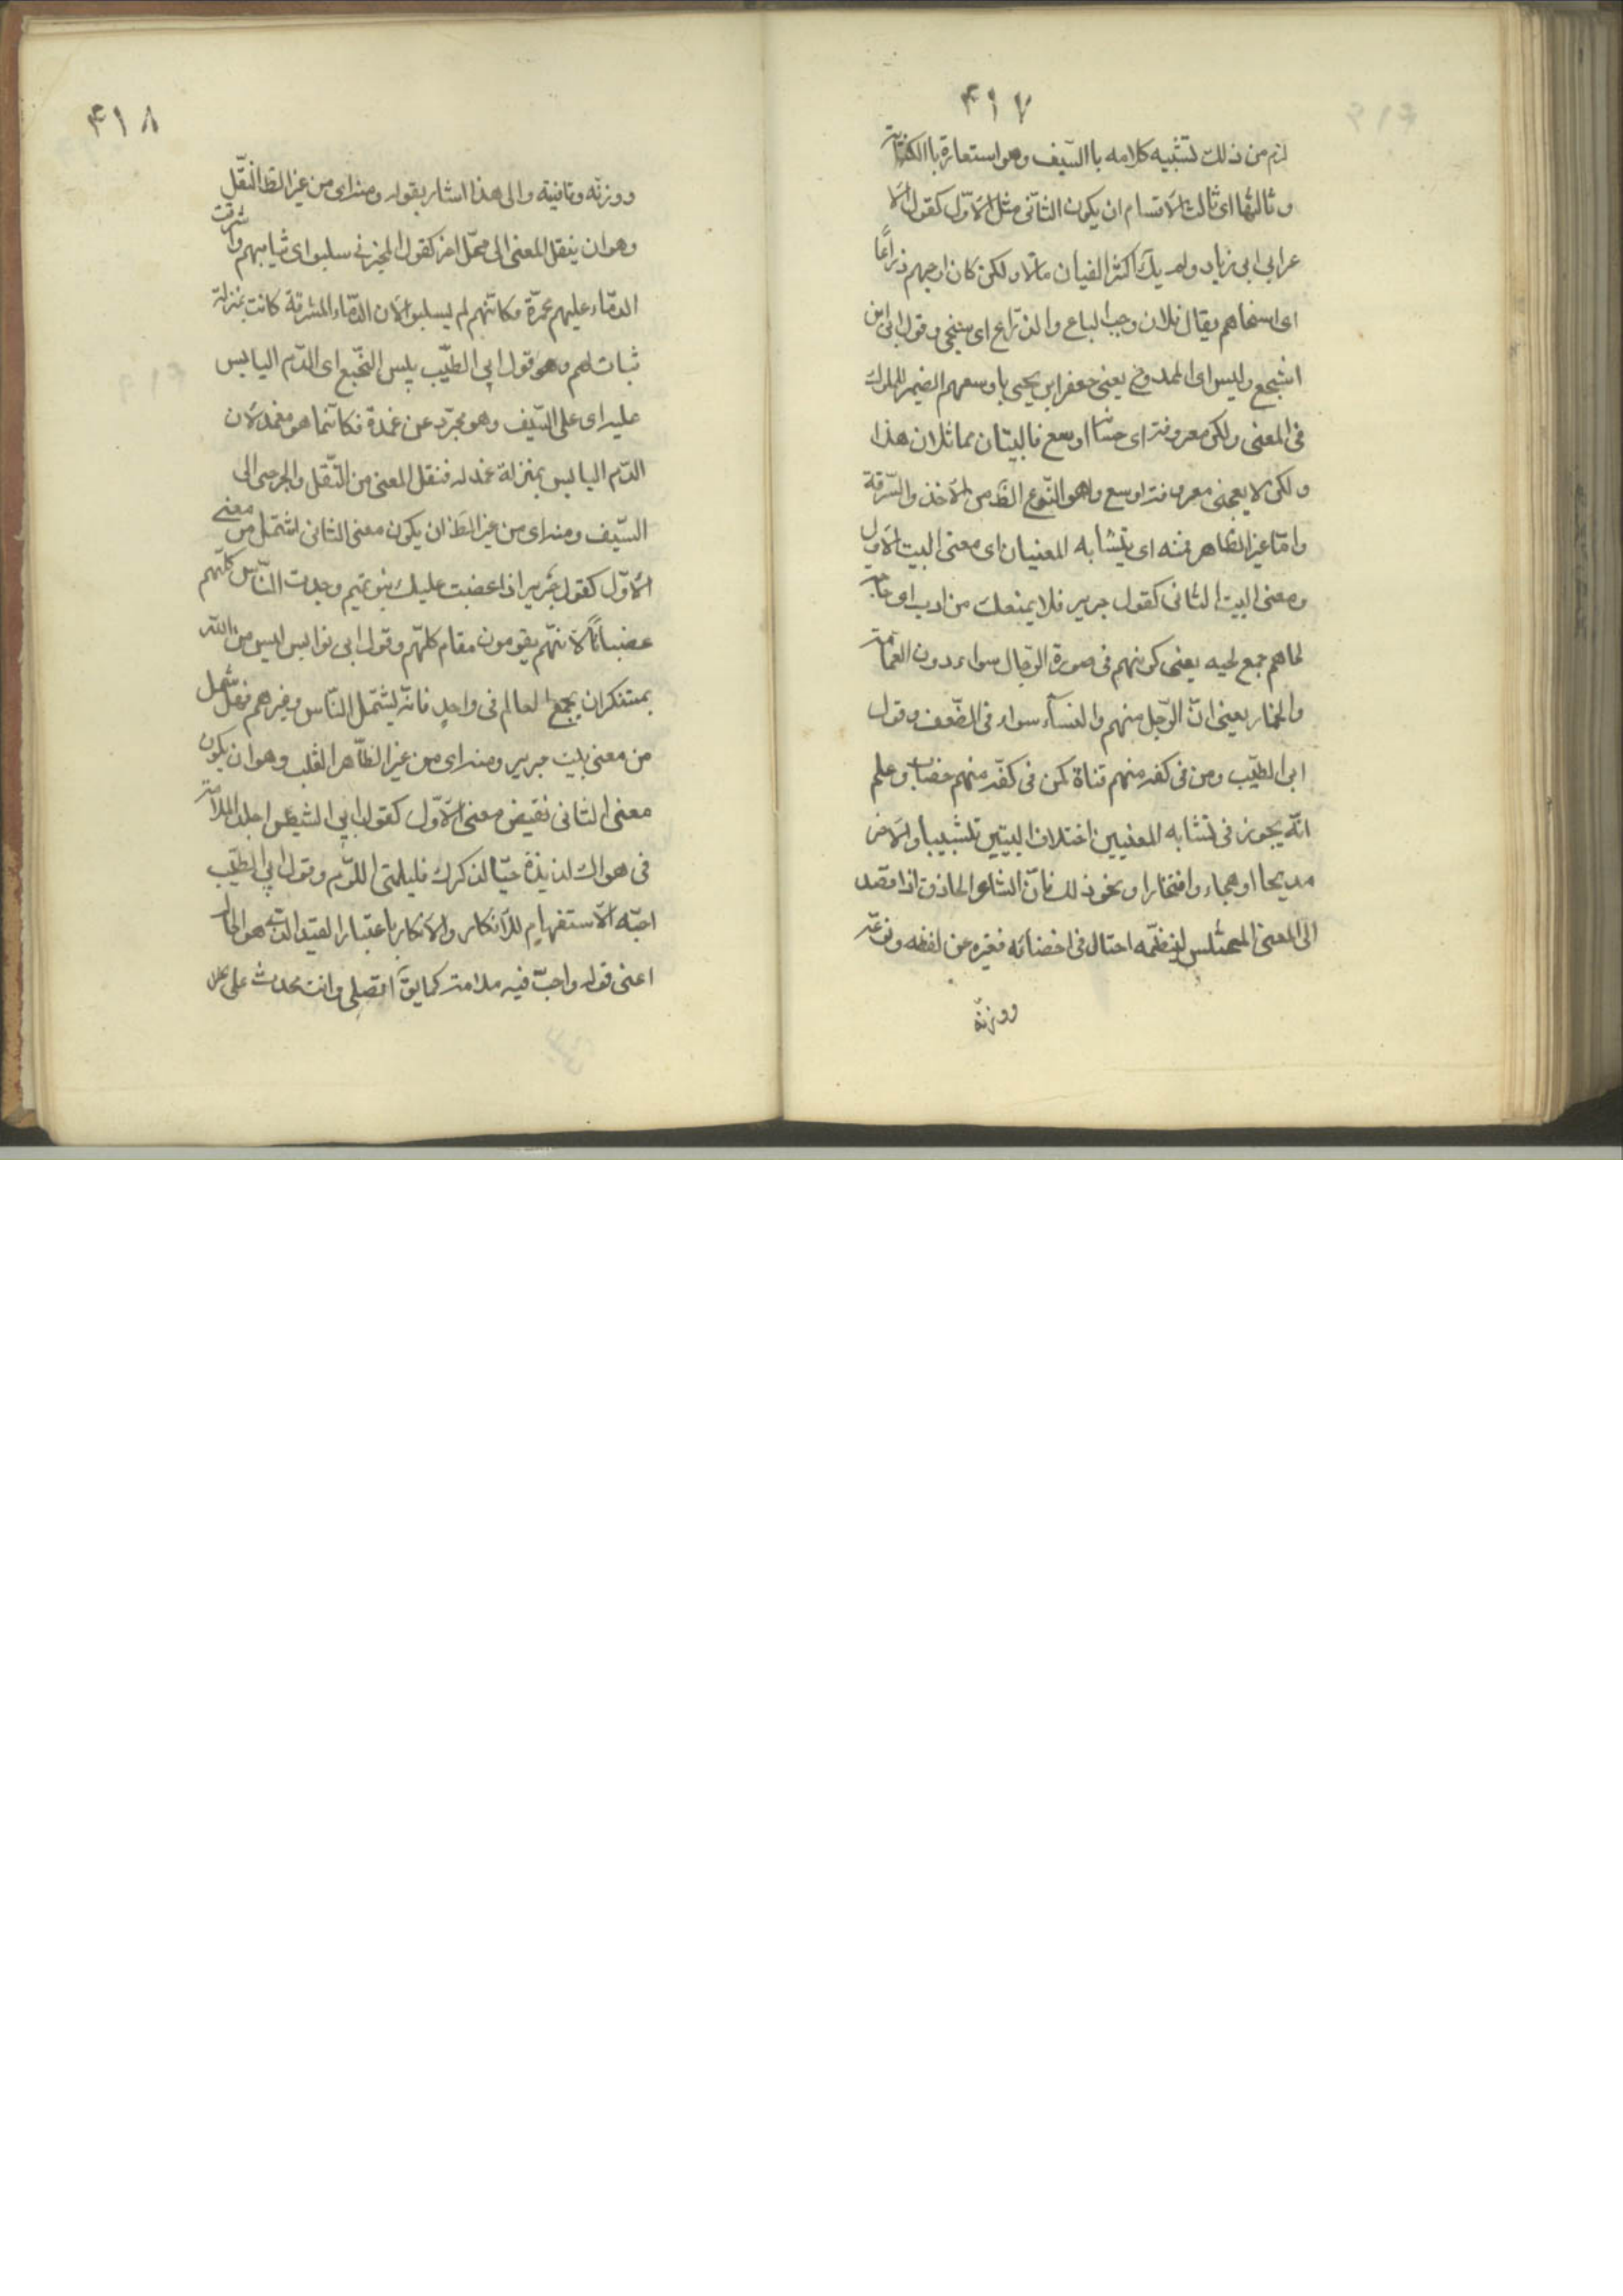 ۴۱۷
لزم من ذلك تشبيه كلامه باالسيف وهو استعارة باالكناية
وثالثها اى ثالث الاقسام ان يكون الثانى مثل الاوّل كقول الا
عرابى ابى زياد ولم يك اكثر الفتيان مالا ولكن كان ارحبهم ذراعًا
اى اسخاهم يقال فلان رحب الباع والذراع اى سخى وقول ابى ابن
اشجع وليس اى الممدوح يعنى جعفر ابن يحيى باوسعهم الضمير للملوك
فى المعنى ولكن معروفه اى احسانه اوسع فالبيتان متماثلان هذا
ولكن لا يعجبنى معروفه اوسع وهو النّوع الظّ من الاخذ والسّرقة
وامّا غير الظاهر فمنه اى يتشابه المعنيان اى معنى البيت الاول
ومعنى البيت الثانى كقول جرير فلا يمنعك من ارب اى حاجة
لحاهم جمع لحيه يعنى كونهم فى صورة الرّجال سواء ذو العمامة
والخمار يعنى انّ الرّجل منهم والنسآء سواء فى الضّعف وقول
ابى الطيّب ومن فى كفه منهم قناة كمن فى كفّه منهم خضاب وعلم
انّه يجوز فى تشابه المعنيين اختلاف البيتين تشبيبا والآخر
مديحا او هجاء وافتخارا ونحو ذلك فانّ الشاعر الحاذق اذا قصد
الى المعنى المختلس لينظمه احتال فى اخفائه فغيره عن لفظه ونوعه
ووزنه
۴۱۸
ووزنه وقافيته والى هذا اشار بقوله ومنه اى من غير الظ النّقل
وهو ان ينقل المعنى الى محلّ اخر كقول البحترى سلبوا اى ثيابهم واشرقت
الدّماء عليهم محمرّة فكانّهم لم يسلبوا لان الدّماء المشرقة كانت بمنزلة
ثياب لهم وهو قول ابي الطيّب يبس النّجيع اى الدّم اليابس
عليه اى على السّيف وهو مجرّد عن غمده فكانّما هو مغمد لان
الدّم اليابس بمنزلة غمد له فنقل المعنى من القتلى والجرحى الى
السّيف ومنه اى من غير الظ ان يكون معنى الثانى اشتمل من معنى
الاوّل كقول جرير اذا غضبت عليك بنو تميم وجدت النّاس كلّهم
غضبانًا لانّهم يقومون مقام كلّهم وقول ابى نوابس ليس من الله
بمستنكر ان يجمع العالم فى واحد فانّه يشتمل النّاس وغيرهم فهل شمل
من معنى بيت جرير ومنه اى من غير الظّاهر القلب وهو ان يكون
معنى الثانى نقيض معنى الاوّل كقول ابي الشيص اجد الملامة
فى هواك لذيذة حبّا لذكرك فليلمنى اللوّم وقول ابي الطيّب
احبّه الاستفهام للانكار والانكار باعتبار القيد الّذى هو الحال
اعنى قوله واحبّ فيه ملامة كما يقَ اتصلى وانت محدث على